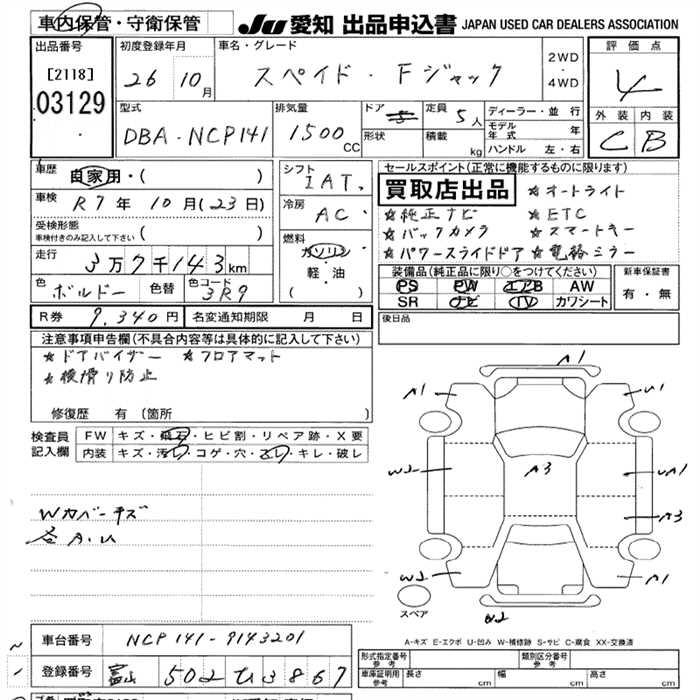 車内保管・守衛保管 JU 愛知 出品申込書 JAPAN USED CAR DEALERS ASSOCIATION
出品番号 [2118] 03129
初度登録年月 26 10月
車名・グレード スペイド・Fジャック
2WD・4WD
評価点 4
外装 C 内装 B
型式 DBA-NCP141
排気量 1500CC
ドア 5
形状
定員 5人
積載 kg
ディーラー・並行
モデル年式 年
ハンドル 左・右
車歴 自家用・( )
車検 R7年10月(23日)
受検形態
車検付きのみ記入して下さい( )
走行 3万7千143km
色 ボルドー 色替 色コード 3R9
シフト IAT.
冷房 AC
燃料 ガソリン・軽・油 ( )
セールスポイント(正常に機能するものに限ります)
買取店出品 ☆オートライト
☆純正ナビ ☆ETC
☆バックカメラ ☆スマートキー
☆パワースライドドア ☆電格ミラー
装備品(純正品に限り○をつけてください)
PS PW エアB AW
SR ナビ TV カワシート
新車保証書 有・無
R券 9,340円 名変通知期限 月 日
後日品
注意事項申告欄(不具合内容等は具体的に記入して下さい)
☆ドアバイザー ☆フロアマット
☆横滑り防止
修復歴 有 (箇所 )
検査員記入欄
FW キズ・飛石・ヒビ割・リペア跡・X要
内装 キズ・汚れ・コゲ・穴・スレ・キレ・破レ
Wカバーキズ
各A.U
A1
A1
UA1
W2
A3
UA1
A3
W2
A1
W2
スペア
A-キズ E-エクボ U-凹み W-補修跡 S-サビ C-腐食 XX-交換済
車台番号 NCP141-9143201
登録番号 富山 502 ひ3867
型式指定番号 参考
類別区分番号 参考
車庫証明用 参考 長さ cm 幅 cm 高さ cm